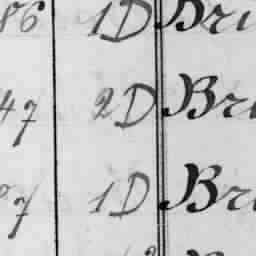 86 1D Bri
47 2D Br
7 1D Br